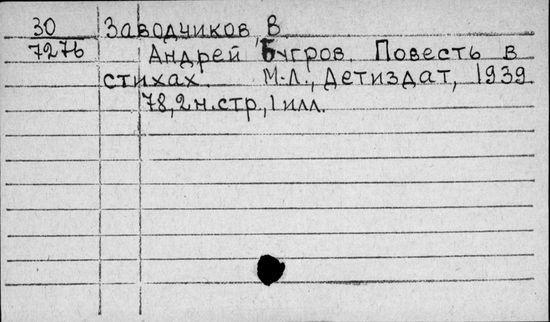 30 Заводчиков, В
7276 Андрей Бугров. Повесть в
стихах. М-Л., Детиздат, 1939
78, 2 н. стр., 1 илл.